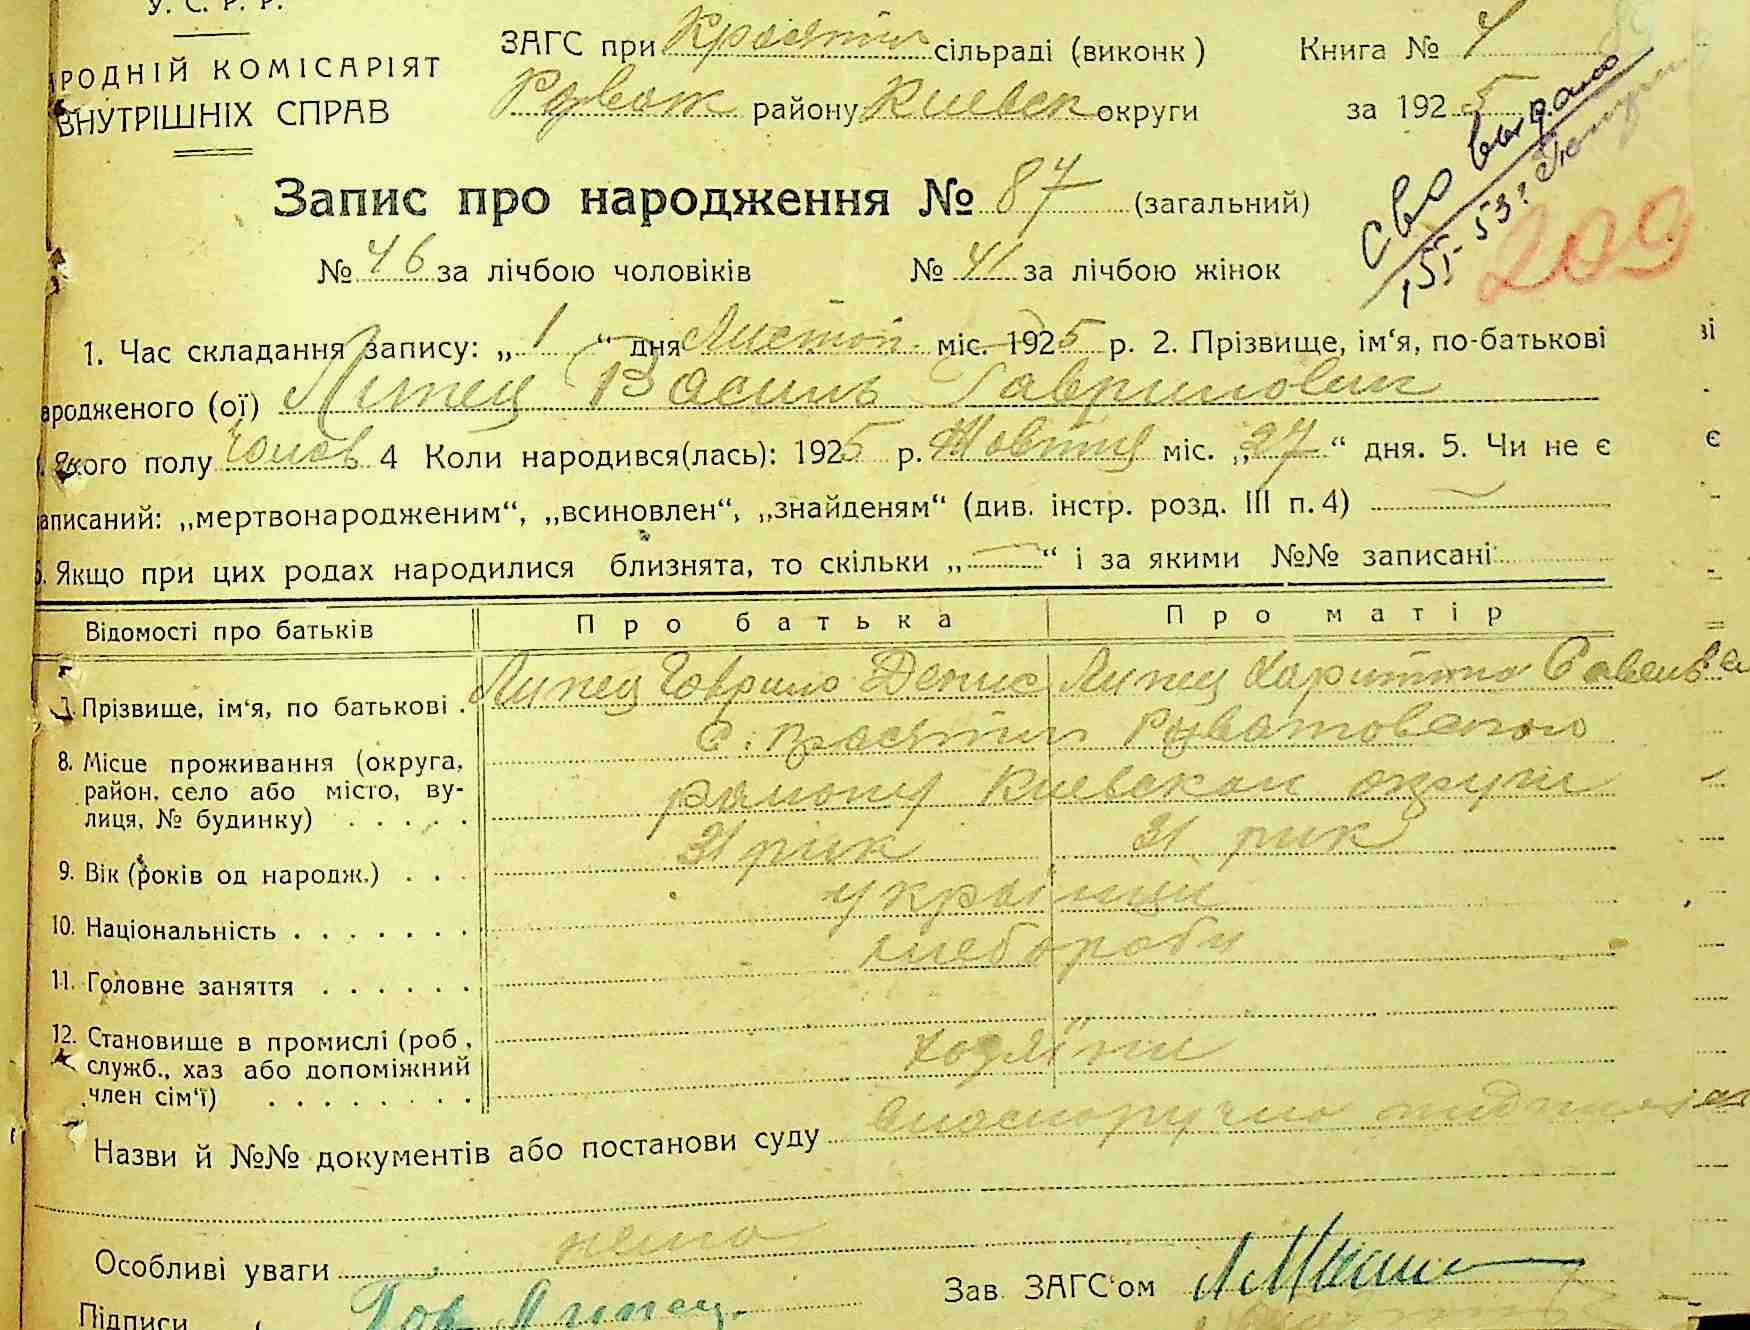 У. С. Р. Р.
РОДНІЙ КОМІСАРІЯТ
ВНУТРІШНІХ СПРАВ
ЗАГС при Красятин сільраді (виконк)
Книга № 4
Розваж району Киевск округи
за 1925
Запис про народження № 87 (загальний)
№ 46 за лічбою чоловіків № 41 за лічбою жінок
сво выдано
209
1. Час складання запису: „1“ дня Листоп. міс. 1925 р. 2. Прізвище, ім‘я, по-батькові
ародженого (ої) Липец Василь Гаврилович
кого полу Чолов 4 Коли народився(лась): 1925 р. Жовтня міс. „27“ дня. 5. Чи не є
аписаний: „мертвонародженим“, „всиновлен“, „знайденям“ (див. інстр. розд. III п. 4)
6. Якщо при цих родах народилися близнята, то скільки „—“ і за якими №№ записані
Відомості про батьків Про батька Про матір
Прізвище, ім‘я, по батькові . Липец Гаврило Денис Липец Харитина Савель
С. Красятин
8. Місце проживання (округа, район, село або місто, вулиця, № будинку) . . . . . району Киевскои округи
9. Вік (років од народж.) . . . 31 рик 31 рик
10. Національність . . . . . . . украінци
11. Головне заняття . . . . . . хлебороби
12. Становище в промислі (роб, служб., хаз або допоміжний член сім‘ї) . . . . . . . . хозяїни
Назви й №№ документів або постанови суду власноручно
Особливі уваги нема
Зав ЗАГС‘ом
Підписи Гав Липец.